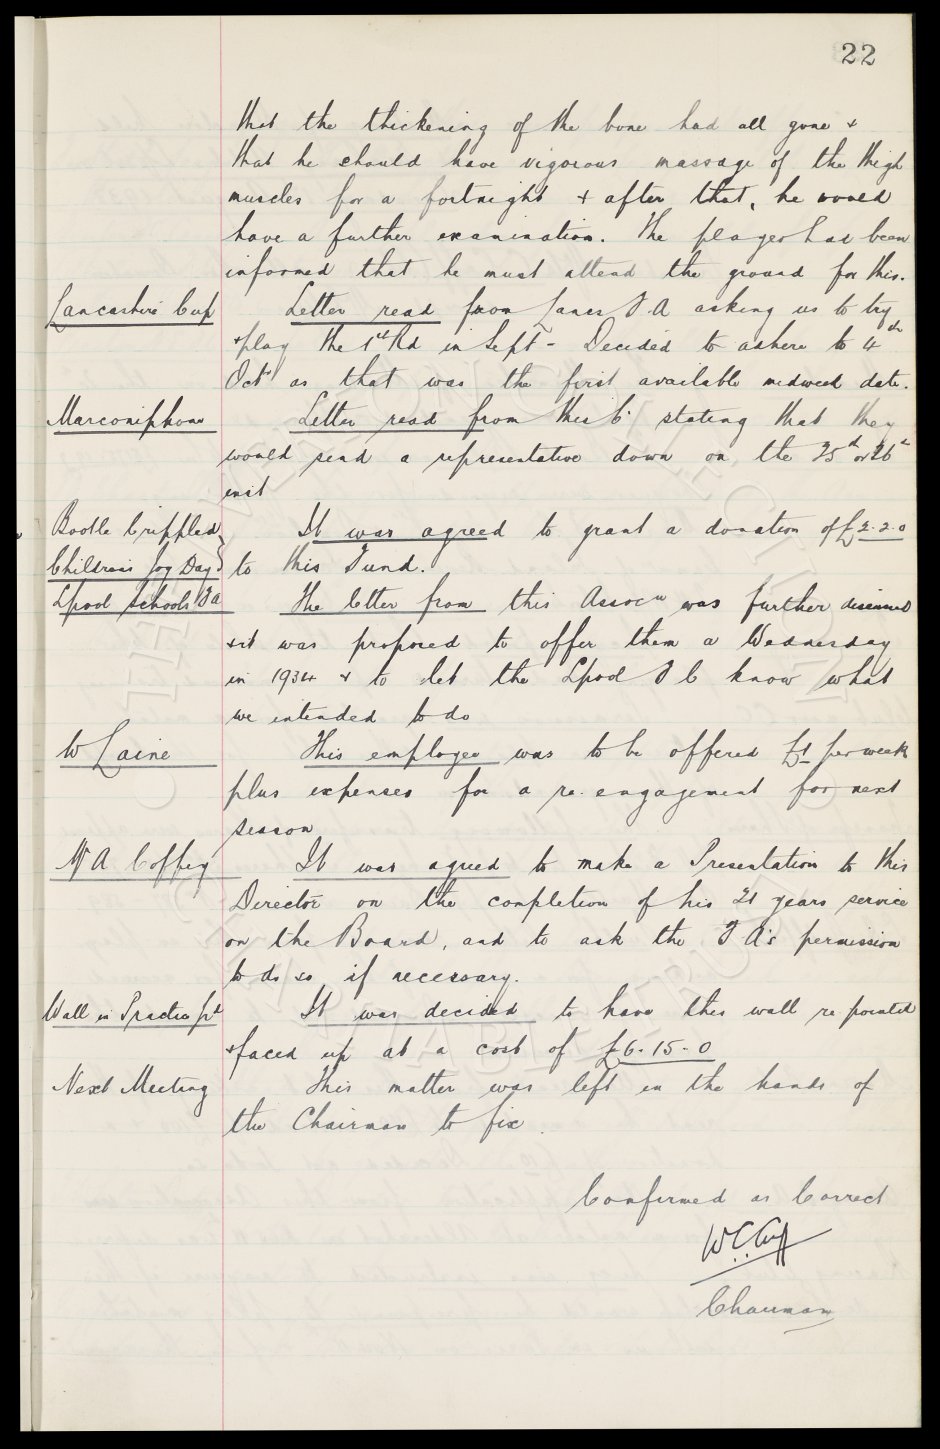 22
that the thickening of the bone had all gone &
that he should have vigorous massage of the thigh
muscles for a fortnight & after that, he would
have a further examination. The player had been
informed that he must attend the ground for this.
Lancashire Cup Letter read from Lancs F A asking us to try
& play the 1st Rd in Sept - Decided to adhere to 4th
Octr as that was the first available midweek date.
Marconiphone Letter read from this Co stating that they
would send a representative down on the 25th or 26th
inst
Bootle Crippled It was agreed to grant a donation of £2-2-0
Childrens Joy Day to this Fund.
Lpool Schools F A The letter from this Assocn was further discussed
& it was proposed to offer them a Wednesday
in 1934 & to let the Lpool F C know what
we intended to do
W Laine This employee was to be offered £1 per week
plus expenses for a re-engagement for next
season
W A Coffey It was agreed to make a Presentation to this
Director on the completion of his 21 years service
on the Board, and to ask the F A's permission
to do so if necessary.
Wall in Practice Gd It was decided to have this wall re pointed
& faced up at a cost of £6-15-0
Next Meeting This matter was left in the hands of
the Chairman to fix.
Confirmed as Correct
W.C. Cuff
Chairman